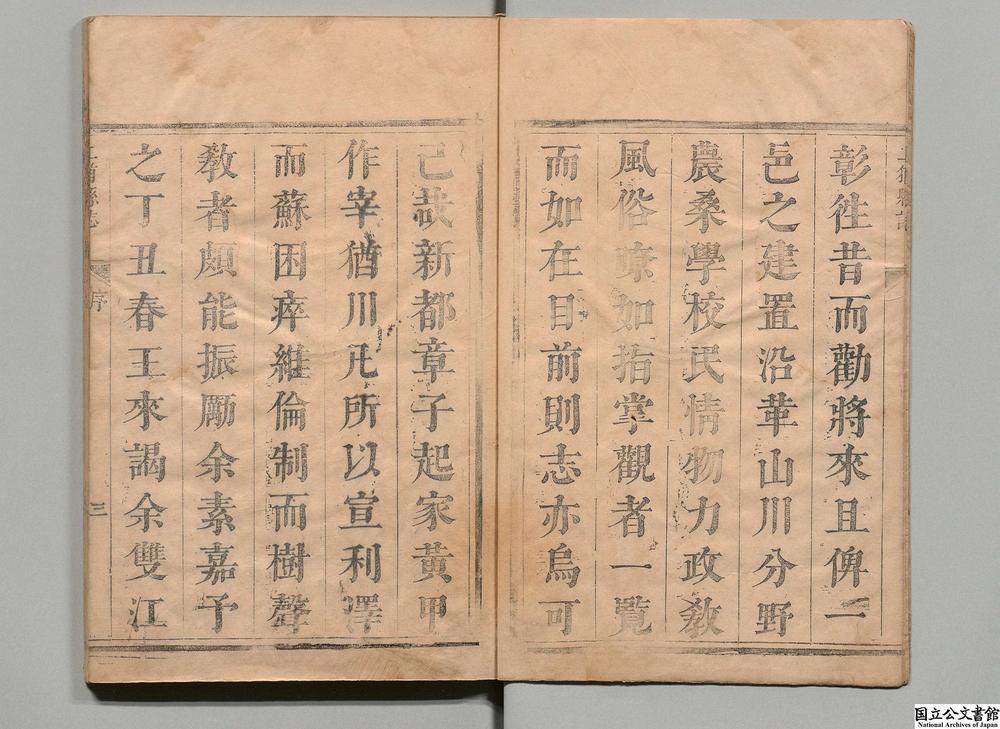 彰徃昔而勸將來且俾一
邑之建置沿革山川分野
農桑學校民情物力政敎
風俗瞭如指掌觀者一覧
而如在目前則志亦烏可
已哉新都章子起家黄甲
作宰猶川凡所以宣利澤
而蘇困瘁維倫制而樹聲
敎者頗能振勵余素嘉予
之丁丑春王來謁余雙江
縣志
序
三
国立公文書館
National Archives of Japan